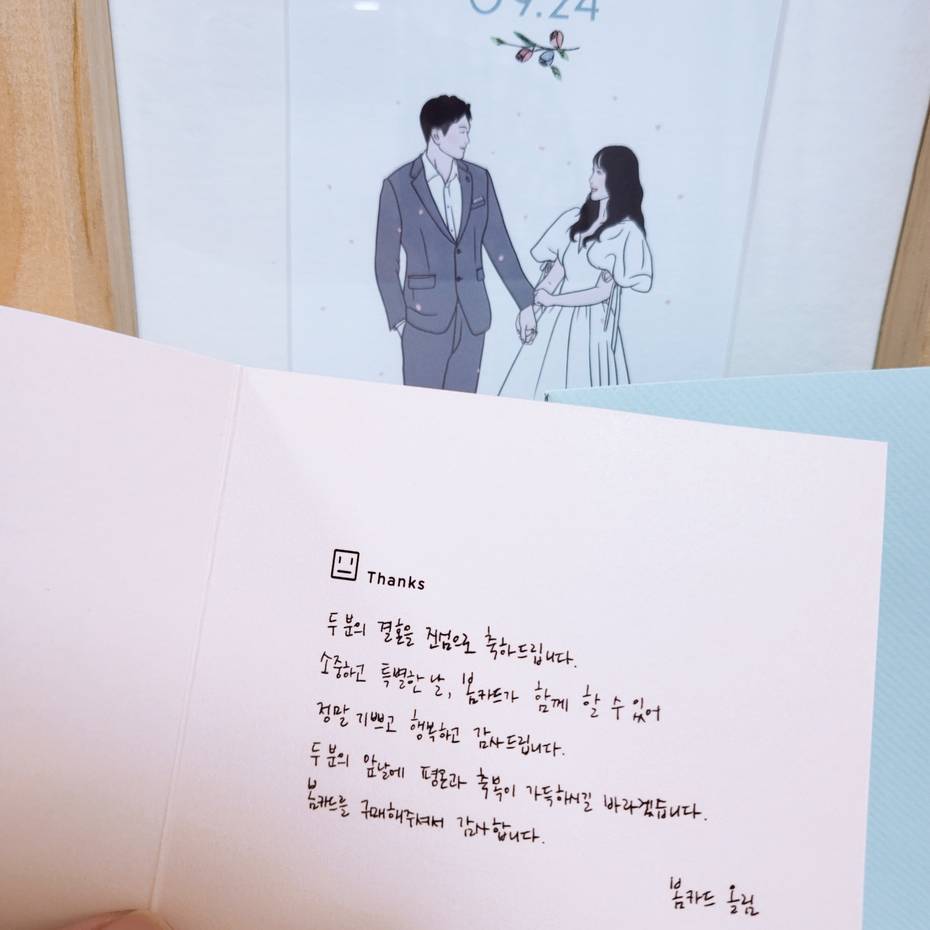 09.24
Thanks
두 분의 결혼을 진심으로 축하드립니다.
소중하고 특별한 날, 봄카드가 함께 할 수 있어
정말 기쁘고 행복하고 감사드립니다.
두 분의 앞날에 평온과 축복이 가득하시길 바라겠습니다.
봄카드를 구매해주셔서 감사합니다.
봄카드 올림